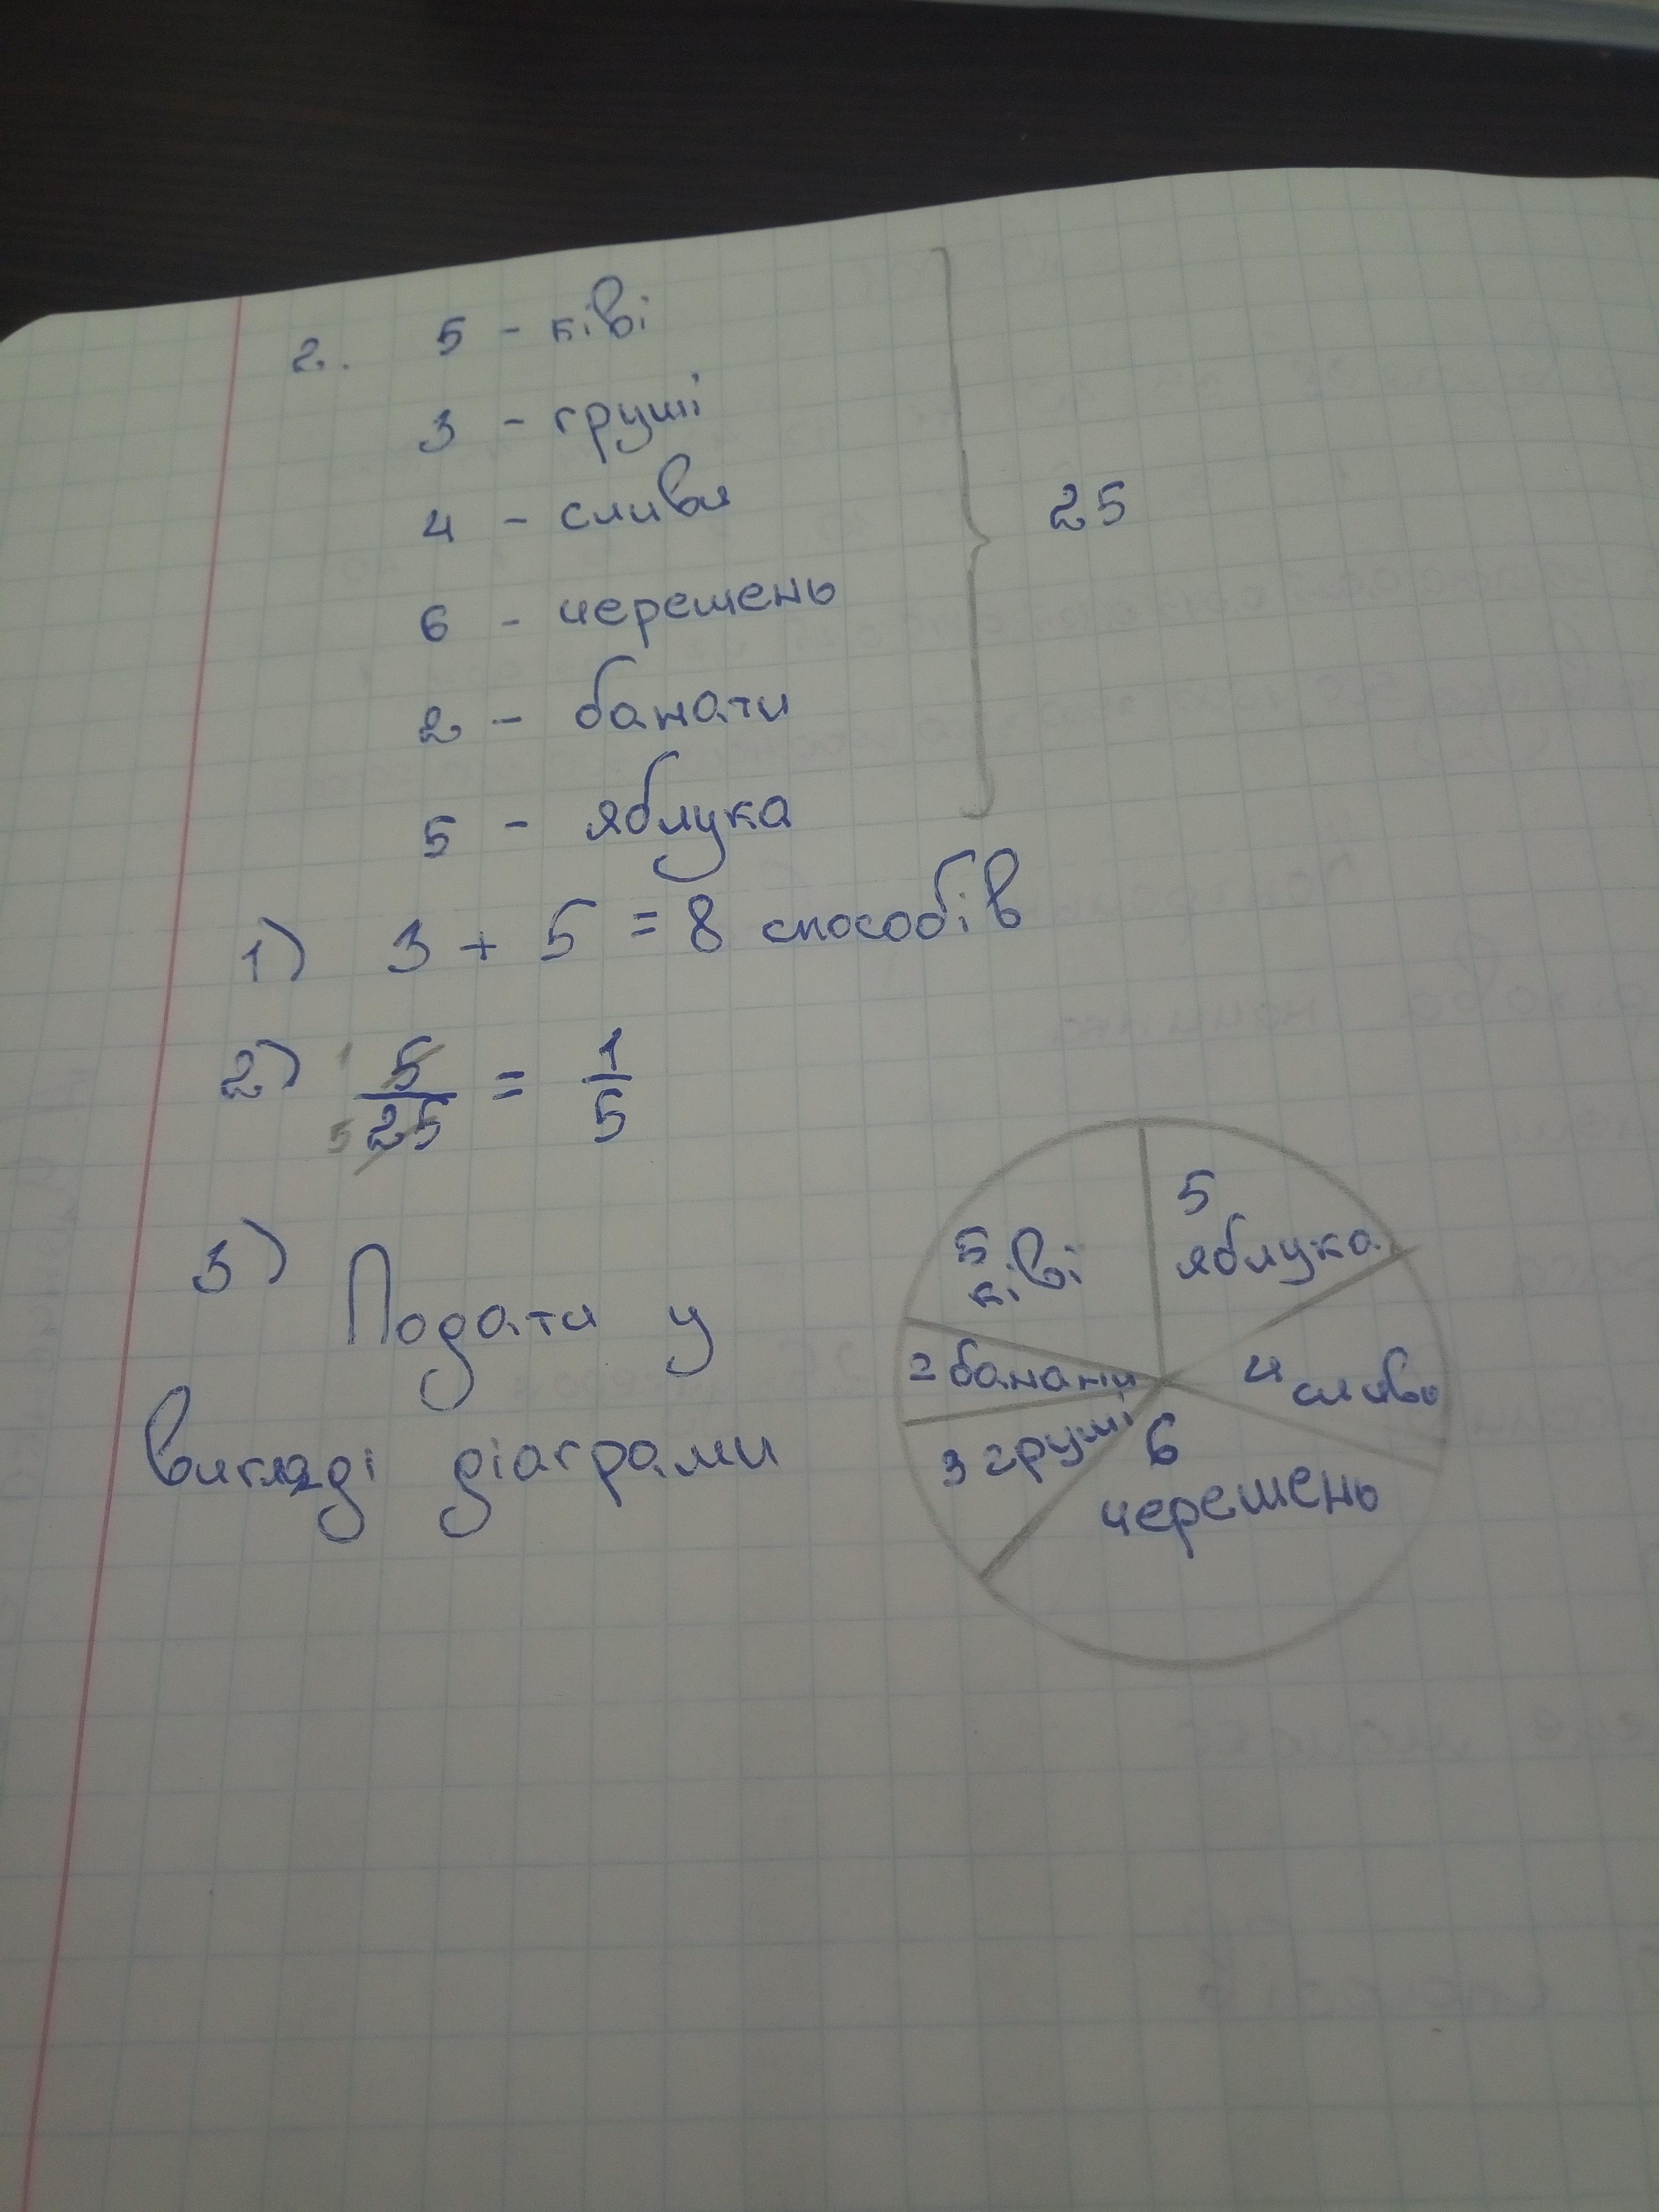 2. 5 - ківі
3 - груші
4 - сливи
6 - черешень
2 - банати
5 - яблука
25
1) 3 + 5 = 8 способів
2) 1 5 / 5 25 = 1 / 5
3) Подати у
вигляді діаграми
5
ківі
5
яблука
2 банани
4 сливи
3 груші
6
черешень